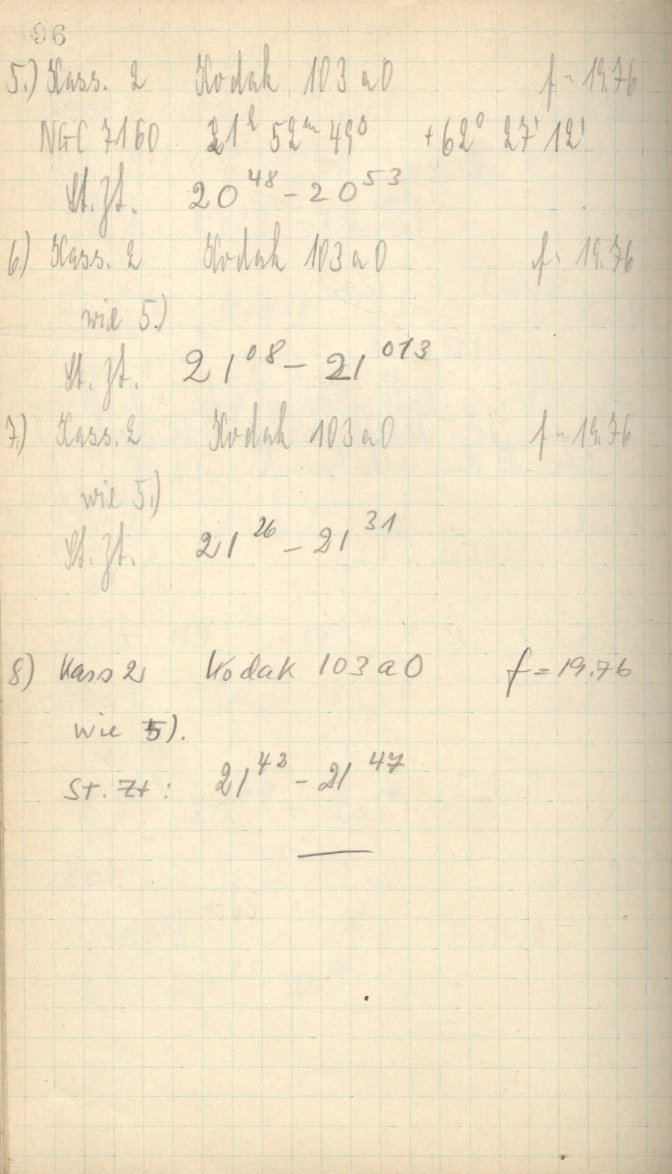 96
5.) Kass. 2 Kodak 103 a0 f = 19.76
NGC 7160 21h 52m 49s +62° 27' 12'
St. Zt. 20 48 - 20 53
6) Kass. 2 Kodak 103 a0 f = 19.76
wie 5.)
St. Zt. 21 08 - 21 013
7.) Kass. 2 Kodak 103 a0 f = 19.76
wie 5.)
St. Zt. 21 26 - 21 31
8) Kass 2 Kodak 103 a0 f = 19.76
wie 5).
St. Zt: 21 42 - 21 47